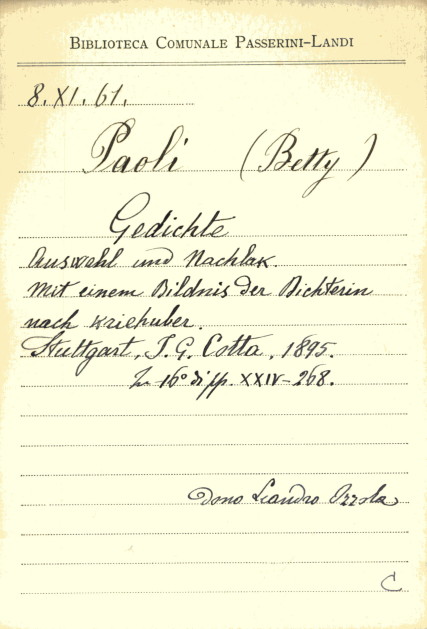 BIBLIOTECA COMUNALE PASSERINI-LANDI
8.XI.61.
Paoli (Betty)
Gedichte
Auswehl und Nachlak.
Mit einem Bildnis der Dichterin
nach Kriehuber.
Stuttgart, J. G. Cotta, 1895.
In 16° di pp. XXIV-268.
Dono Leandro Ozzola
C